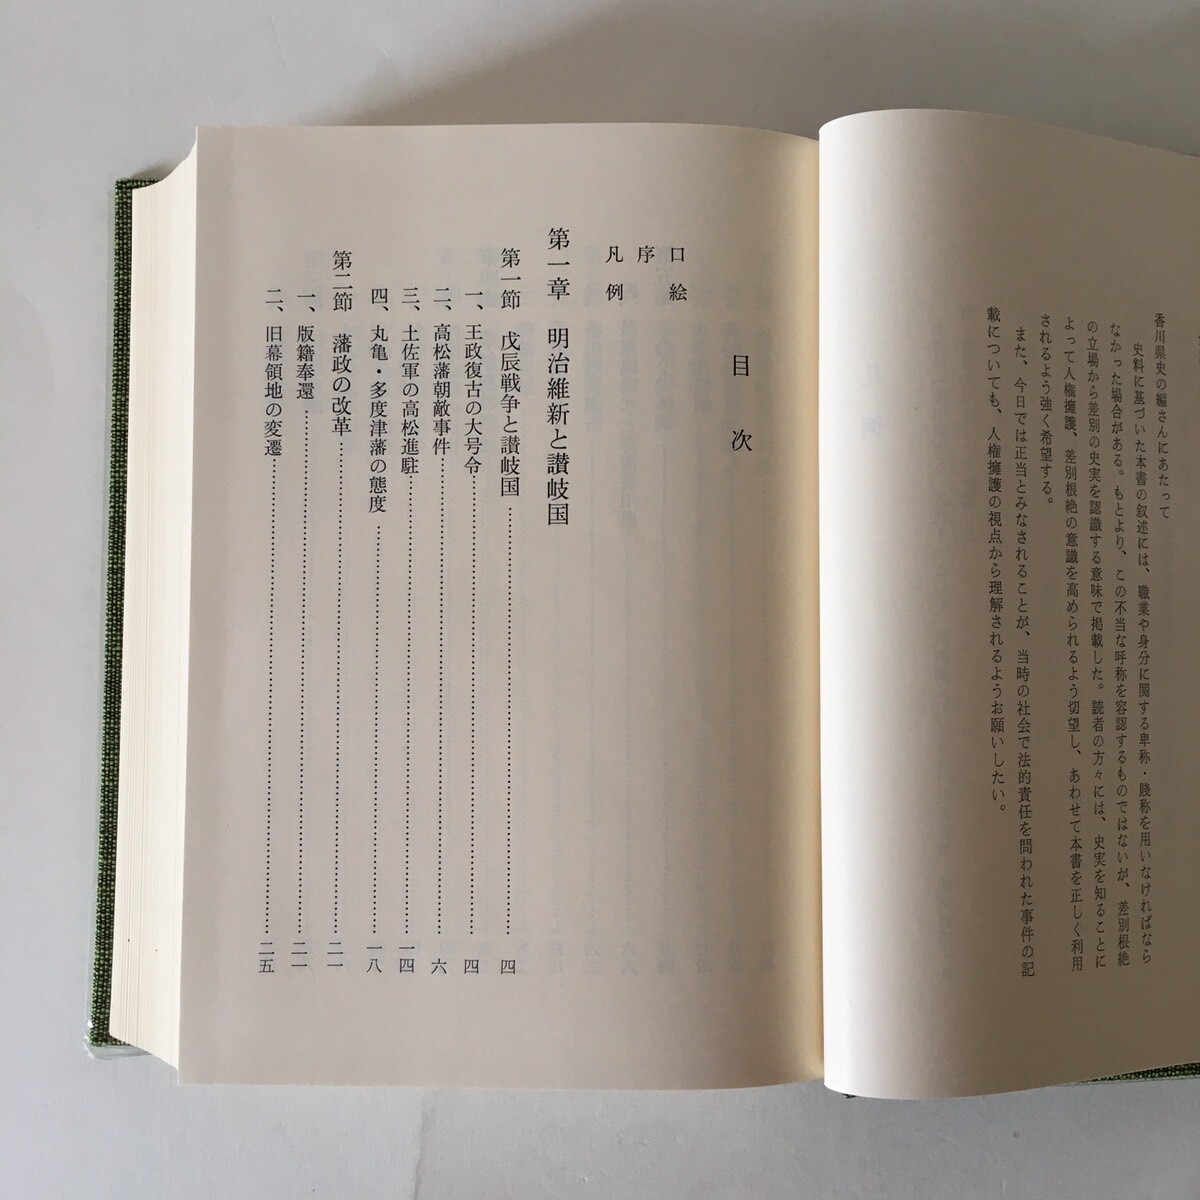 香川県史の編さんにあたって
史料に基づいた本書の叙述には、職業や身分に関する卑称・賤称を用いなければなら
なかった場合がある。もとより、この不当な呼称を容認するものではないが、差別根絶
の立場から差別の史実を認識する意味で掲載した。読者の方々には、史実を知ることに
よって人権擁護、差別根絶の意識を高められるよう切望し、あわせて本書を正しく利用
されるよう強く希望する。
また、今日では正当とみなされることが、当時の社会で法的責任を問われた事件の記
載についても、人権擁護の視点から理解されるようお願いしたい。
目次
口絵
序
凡例
第一章 明治維新と讃岐国
第一節 戊辰戦争と讃岐国……四
一、王政復古の大号令……四
二、高松藩朝敵事件……六
三、土佐軍の高松進駐……一四
四、丸亀・多度津藩の態度……一八
第二節 藩政の改革……二一
一、版籍奉還……二一
二、旧幕領地の変遷……二五